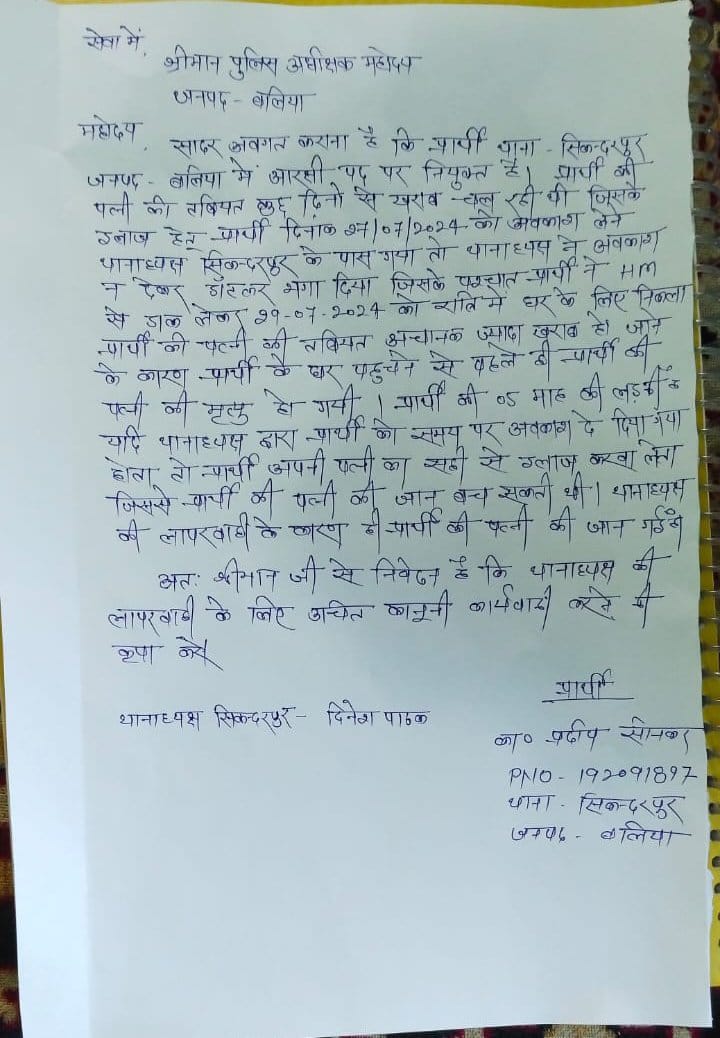 सेवा में,
श्रीमान पुलिस अधीक्षक महोदय
जनपद - बलिया
महोदय,
सादर अवगत कराना है कि प्रार्थी थाना - सिकन्दरपुर
जनपद - बलिया में आरक्षी पद पर नियुक्त है। प्रार्थी की
पत्नी की तबियत कुछ दिनो से खराब चल रही थी जिसके
इलाज हेतु प्रार्थी दिनांक 27/07/2024 को अवकाश लेने
थानाध्यक्ष सिकन्दरपुर के पास गया तो थानाध्यक्ष ने अवकाश
न देकर डॉटकर भगा दिया जिसके पश्चात प्रार्थी ने HM
से डाक लेकर 29-07-2024 को रात्रि में घर के लिए निकला
प्रार्थी की पत्नी की तबियत अचानक ज्यादा खराब हो जाने
के कारण प्रार्थी के घर पहुचने से पहले ही प्रार्थी की
पत्नी की मृत्यु हो गयी। प्रार्थी की 05 माह की लड़की है
यदि थानाध्यक्ष द्वारा प्रार्थी को समय पर अवकाश दे दिया गया
होता तो प्रार्थी अपनी पत्नी का सही से इलाज करवा लेता
जिससे प्रार्थी की पत्नी की जान बच सकती थी। थानाध्यक्ष
की लापरवाही के कारण ही प्रार्थी की पत्नी की जान गई है
अतः श्रीमान जी से निवेदन है कि थानाध्यक्ष की
लापरवाही के लिए उचित कानूनी कार्यवाही करने की
कृपा करें
प्रार्थी
थानाध्यक्ष सिकन्दरपुर - दिनेश पाठक
का० प्रदीप सोनकर
PNO - 192091897
थाना - सिकन्दरपुर
जनपद - बलिया